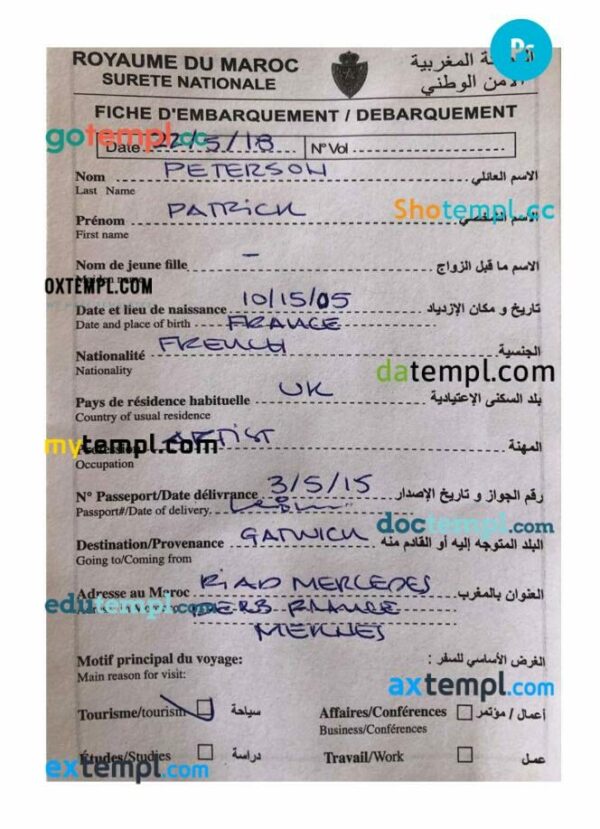 Ps
ROYAUME DU MAROC المغربية
SURETE NATIONALE الأمن الوطني
FICHE D'EMBARQUEMENT / DEBARQUEMENT
gotempl.cc
Date 22/5/18 N° Vol
Nom PETERSON الاسم العائلي
Last Name
Prénom PATRICK
First name
Shotempl.cc
Nom de jeune fille - الاسم ما قبل الزواج
OXTEMPL.COM
Date et lieu de naissance 10/15/05 تاريخ و مكان الإزدياد
Date and place of birth FRANCE
Nationalité FRENCH الجنسية
Nationality
datempl.com
Pays de résidence habituelle UK بلد السكنى الإعتيادية
Country of usual residence
mytempl.com
ARTIST المهنة
Occupation
N° Passeport/Date délivrance 3/5/15 رقم الجواز و تاريخ الإصدار
Passport#/Date of delivery
doctempl.com
Destination/Provenance GATWICK البلد المتوجه إليه أو القادم منه
Going to/Coming from
Adresse au Maroc RIAD MERCEDES العنوان بالمغرب
edutempl.com
DERB FRANCE
MEKNES
Motif principal du voyage: الغرض الأساسي للسفر :
Main reason for visit:
axtempl.com
Tourisme/tourism سياحة Affaires/Conférences أعمال / مؤتمر
Business/Conferences
Études/Studies دراسة Travail/Work عمل
extempl.com